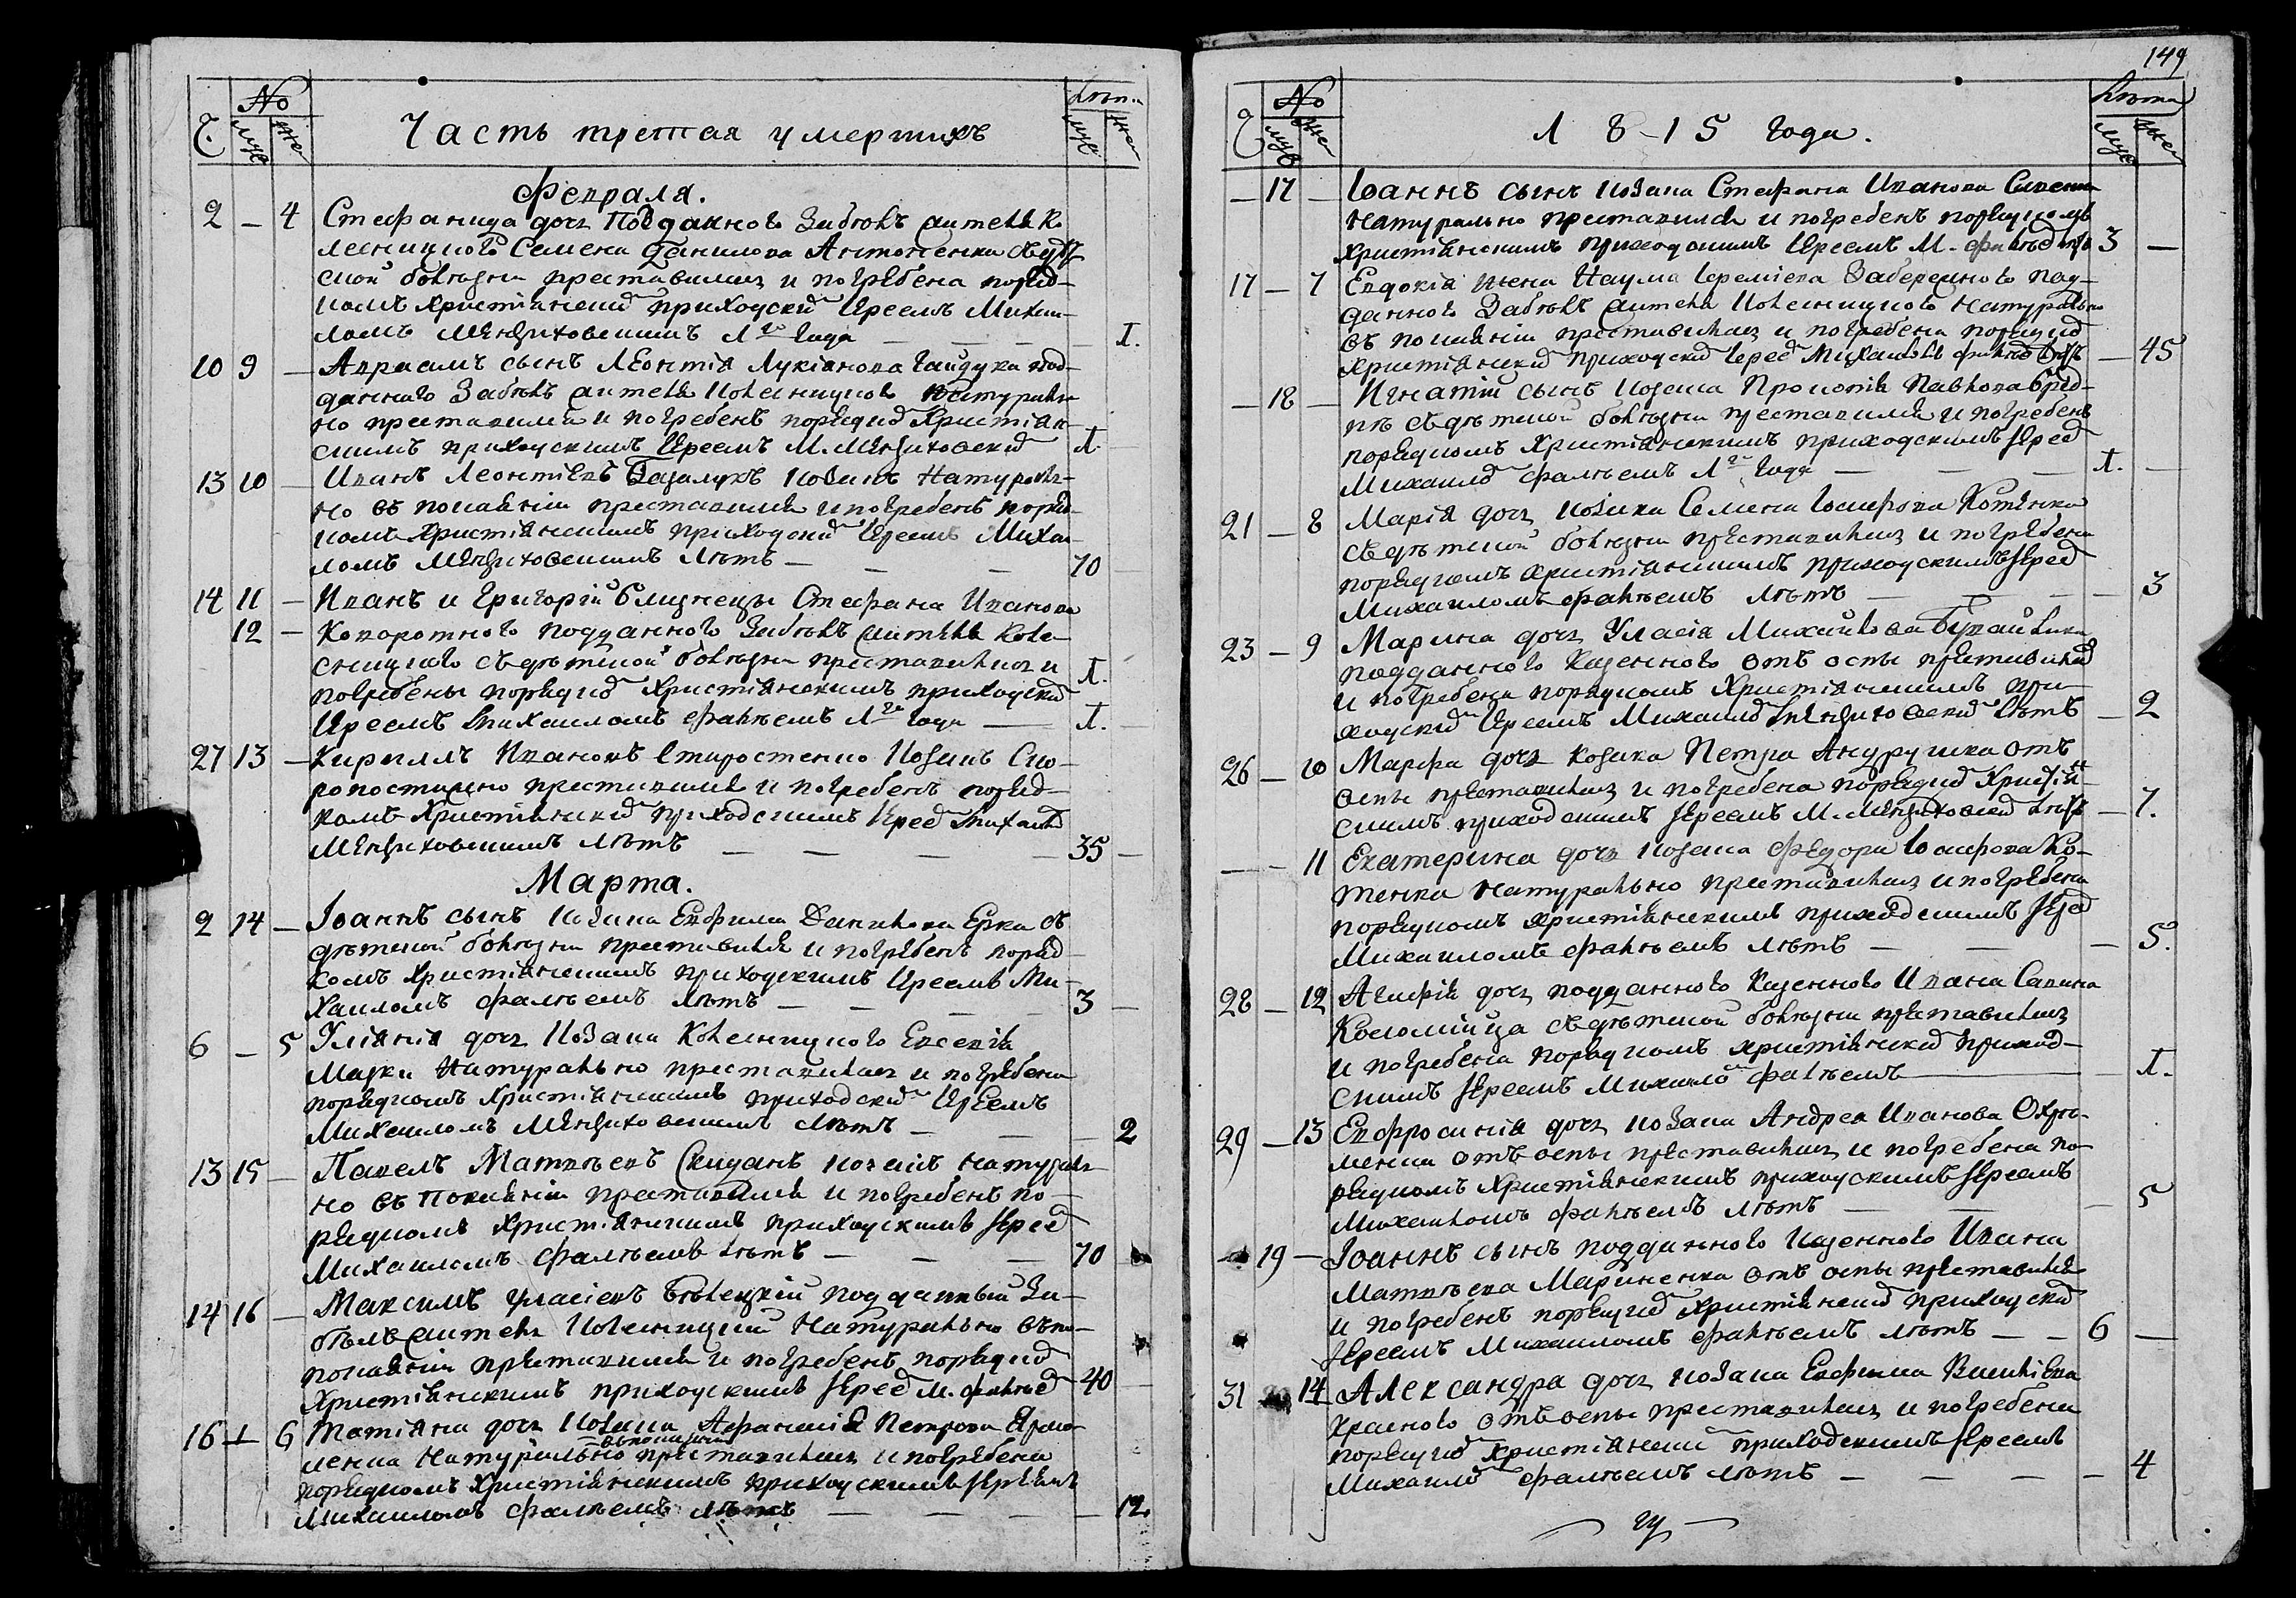 №
Лѣта
Ч.
муж
жен
Часть третая умершихъ
муж
жен
Февраля.
2 — 4 Стефанида дочь подданного Забѣлѣ
лесницкого Семена Данилова Антоненка съ дѣт
ской болѣзни преставилась и погребена поряд-
комъ христіянски приходски Іереемъ Михаи-
ломъ Менжиховскимъ 1го года — — — 1.
10 9 — Авраамъ сынъ Леонтія Лукіянова Гайдука под-
данного Забѣлѣ Колесницког натураль
но преставился и погребенъ порядко христіян-
скимъ приходскимъ Іереемъ М. Менжиховски 1.
13 10 — Иванъ Леонтіевъ козакъ натураль-
но въ покаяніи преставился и погребенъ поряд
комъ христіянскимъ приходски Іереемъ Михаи
ломъ Менжиховскимъ лѣтъ — — — 70
14 11 — Иванъ и Григорій близнецы Стефана Иванова
12 — Коворотного подданного Забѣлѣ Коле-
сницкого съ дѣтской болѣзни преставились и 1.
погребены порядко христіянскимъ приходски
Іереемъ Михаиломъ Фалѣемъ 1го года — 1.
27 13 — Кириллъ Ивановъ Старостенко козакъ ско-
ропостижно преставился и погребенъ поряд-
комъ христіянски приходскимъ Іерее Михаило
Менжиховскимъ лѣтъ — — — 35 —
Марта.
2 14 — Іоаннъ сынъ козака Евфима Данилова Ерка съ
дѣтской болѣзни преставился и погребенъ поряд
комъ христіянскимъ приходскимъ Іереемъ Ми-
хаиломъ Фалѣемъ лѣтъ — — — 3 —
6 — 5 Уліянія дочь козака Колесницкого Евсевія
натурально преставилась и погребена
порядкомъ христіянскимъ приходски Іереемъ
Михаиломъ Менжиховскимъ лѣтъ — — — 2
13 15 — Павелъ Матвѣевъ Скиданъ козакъ натураль
но въ покаяніи преставился и погребенъ по-
рядкомъ христіянскимъ приходскимъ Іерее
Михаиломъ Фалѣемъ лѣтъ — — 70
14 16 — Максимъ Уласіевъ Бѣлецкій подданный За-
бѣлѣ Колесницкій натурально въ по-
каяніи преставился и погребенъ порядко
христіянскимъ приходскимъ Іерее М. Фалѣе 40
16 — 6 Татіяна дочь козака Афанасія Петрова
натурально въ покаяніи преставилась и погребена
порядкомъ христіянскимъ приходскимъ Іереемъ
Михаиломъ Фалѣемъ лѣтъ — — — 12.
149
№
Лѣта
Ч
муж
жен
1815 года.
муж
жен
— 17 — Іоаннъ сынъ козака Стефана Иванова
натурально преставился и погребенъ порядкомъ
христіянскимъ приходскимъ Іереемъ М. Фалѣе лѣтъ 3 —
17 — 7 Евдокія жена Наума Іереміева Забережного под-
данного Забѣлѣ Колесницкого натурально
въ покаяніи преставилась и погребена порядко
христіянски приходски Іерее Михаиломъ Фалѣе лѣтъ — 45
— 18 — Игнатій сынъ козака Прокопія Павлова
съ дѣтской болѣзни преставился и погребенъ
порядкомъ христіянскимъ приходскимъ Іерее
Михаило Фалѣемъ 1го года — — — 1. —
21 — 8 Марія дочь козака Семена Іосифова Котенка
съ дѣтской болѣзни преставилась и погребена
порядкомъ христіянскимъ приходскимъ Іерее
Михаиломъ Фалѣемъ лѣтъ — — — 3
23 — 9 Марина дочь Уласія Михайлова
подданного казенного отъ оспы преставилась
и погребена порядкомъ христіянскимъ при-
ходски Іереемъ Михаило Менжиховски лѣтъ — 2
26 — 10 Марфа дочь козака Петра Андрушка отъ
оспы преставилась и погребена порядко христіян-
скимъ приходскимъ Іереемъ М. Менжиховски лѣтъ — 7.
— — 11 Екатерина дочь козака Федора Іосифова Ко-
тенка натурально преставилась и погребена
порядкомъ христіянскимъ приходскимъ Іерее
Михаиломъ Фалѣемъ лѣтъ — — — 5.
28 — 12 Агафія дочь подданного казенного Ивана Савина
Коломійца съ дѣтской болѣзни преставилась
и погребена порядкомъ христіянски приход-
скимъ Іереемъ Михаило Фалѣемъ — 1.
29 — 13 Евфросинія дочь козака Андрея Иванова Охри-
менка отъ оспы преставилась и погребена по-
рядкомъ христіянскимъ приходскимъ Іереемъ
Михаиломъ Фалѣемъ лѣтъ — — — 5
19 — Іоаннъ сынъ подданного казенного Ивана
Матвѣева Мариненка отъ оспы преставился
и погребенъ порядко христіянски приходски
Іереемъ Михаиломъ Фалѣемъ лѣтъ — — 6 —
31 14 Александра дочь козака Евфима Василіева
Храмого отъ оспы преставилась и погребена
порядко христіянски приходскимъ Іереемъ
Михаило Фалѣемъ лѣтъ — — — — 4